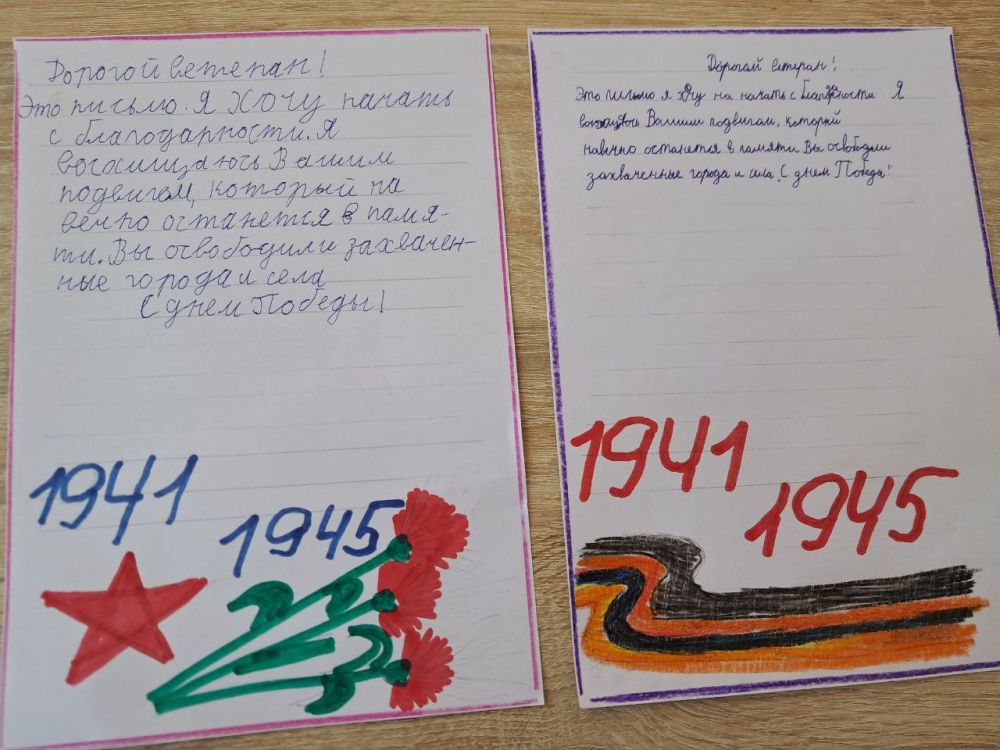 Дорогой ветепан!
Это письмо. Я ХОЧУ начать
с благодарности. Я
восхищаюсь Вашим
подвигом, который на
вечно останется в памя-
ти. Вы освободили захвачен-
ные города и села
С днем Победы!
1941
1945
Дорогой ветеран!
Это письмо я хочу на начать с благодарности Я
восхищаюсь Вашим подвигом, который
навечно останется в памяти Вы освободили
захваченные города и села. С днем Победа!
1941
1945